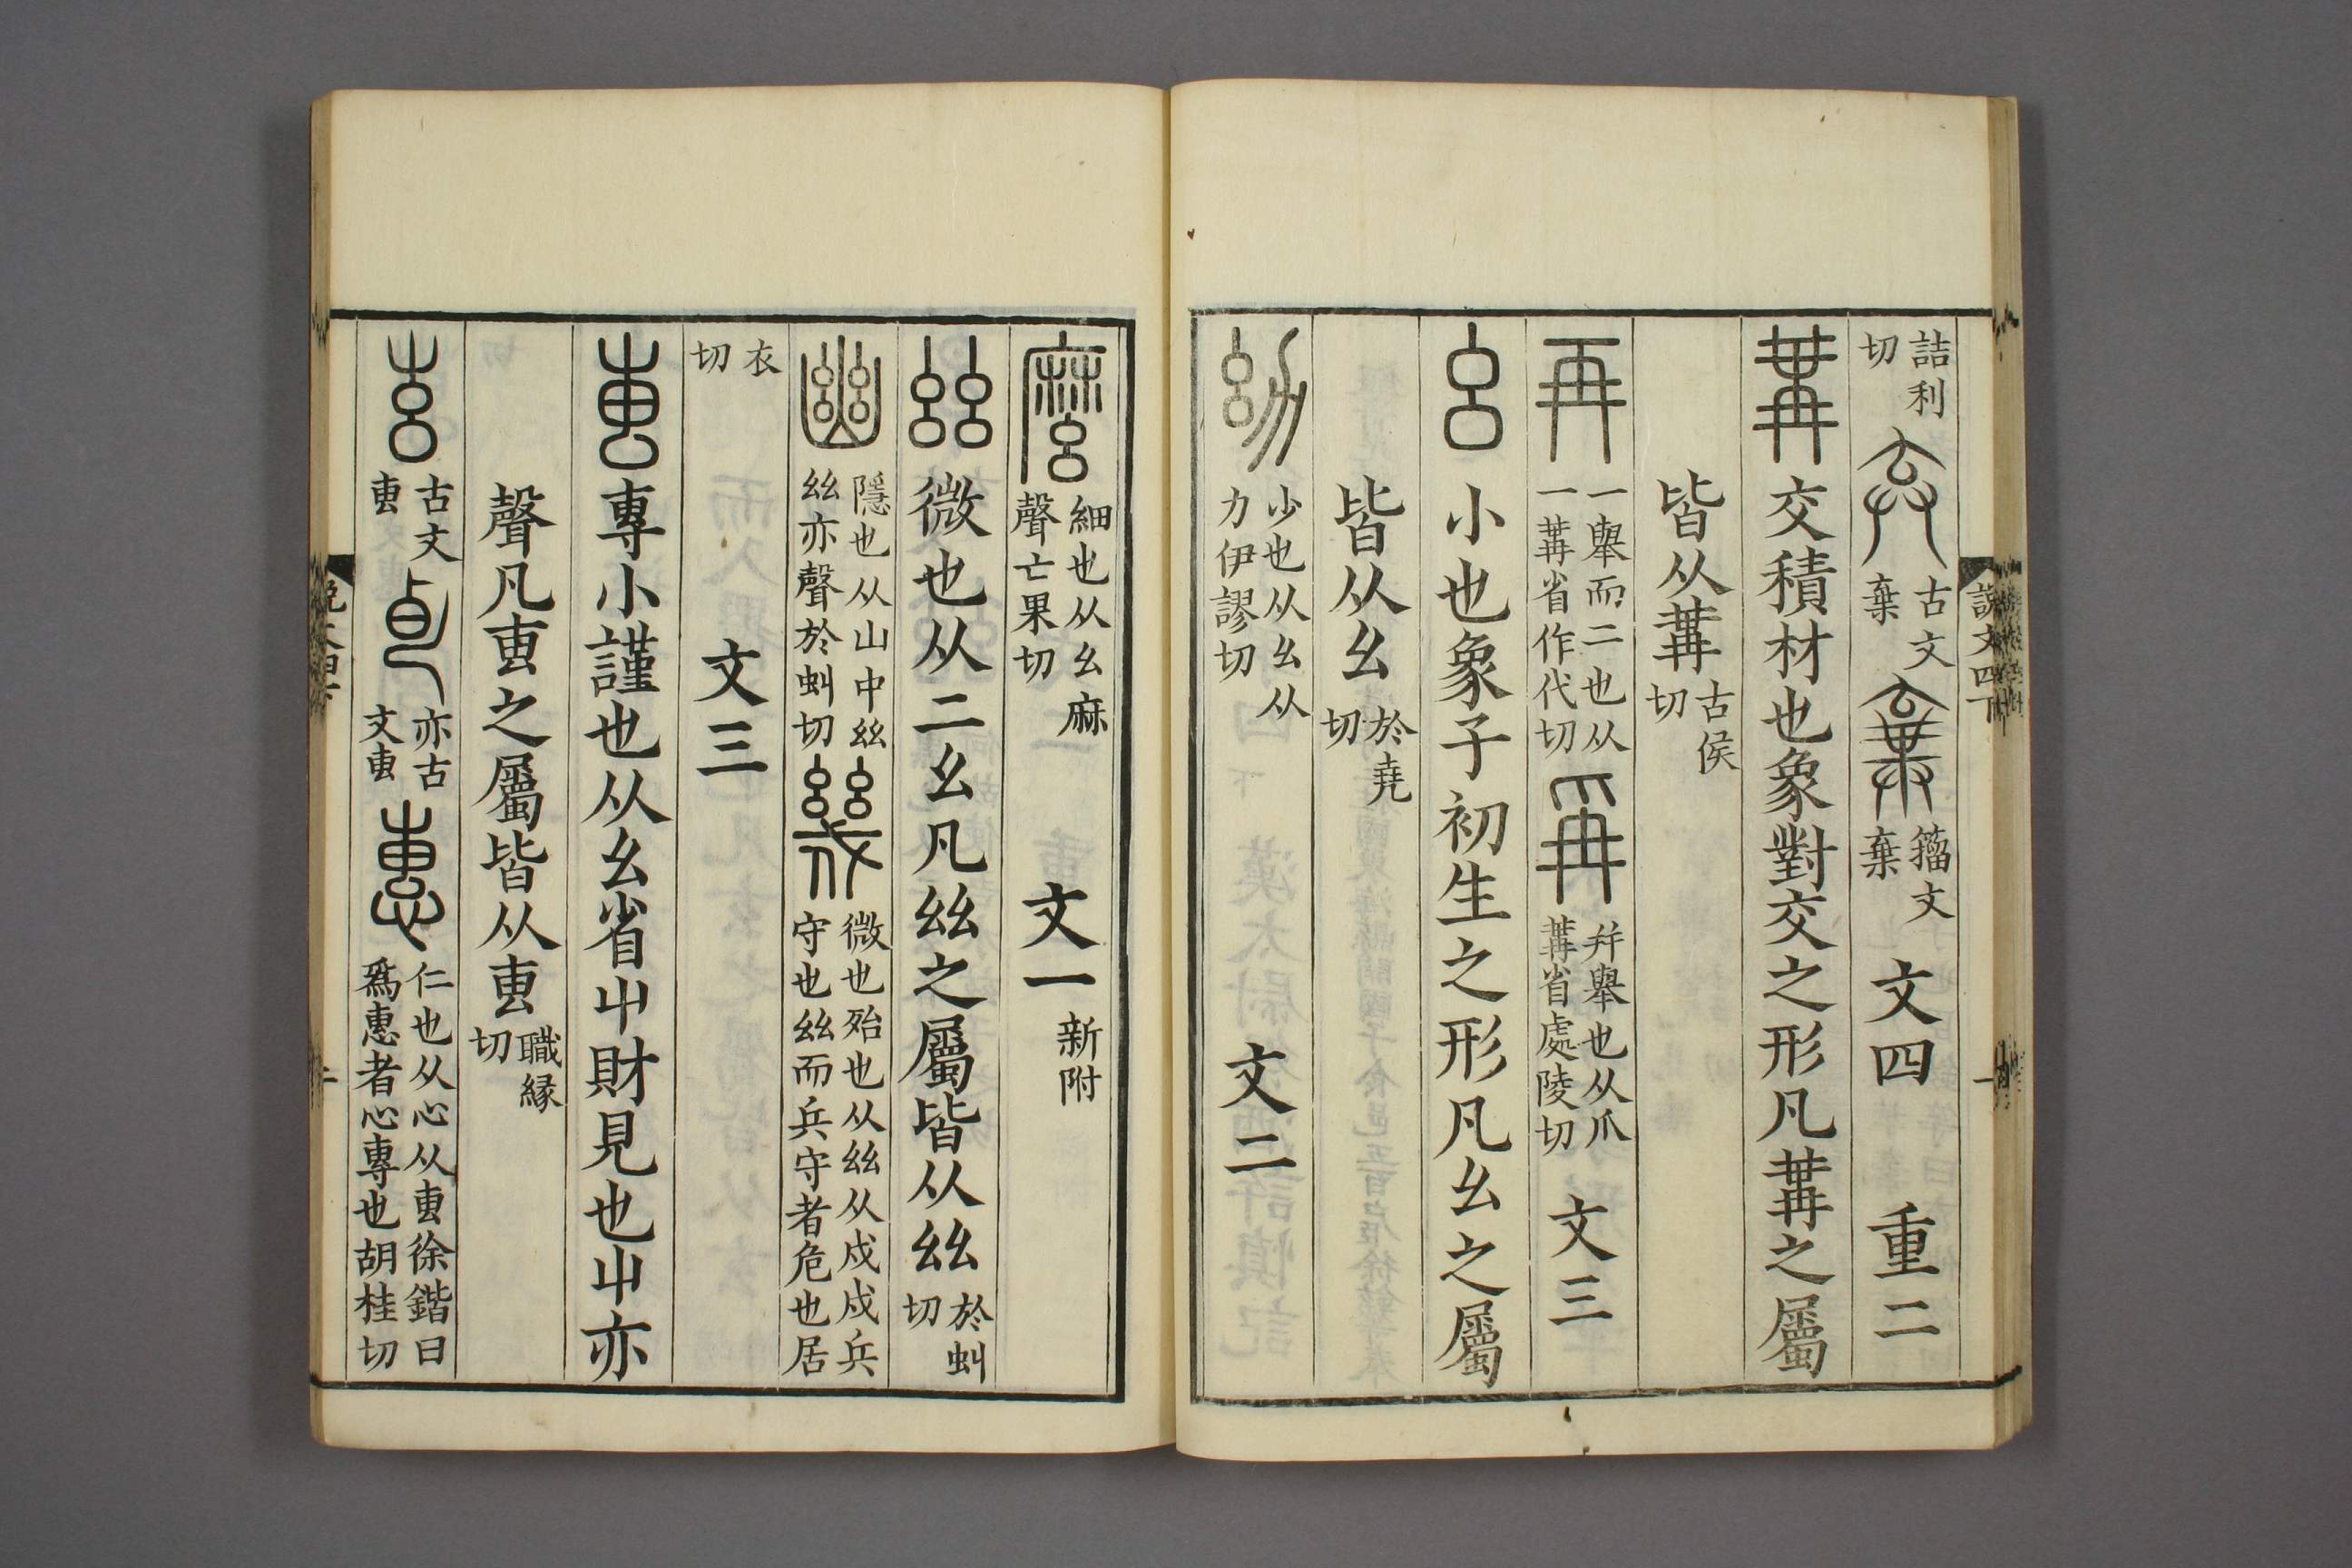 說文四下
詰利切 𠫞 古文棄 棄 籀文棄 文四 重二
冓 交積材也象對交之形凡冓之屬
皆从冓 古侯切
再 一舉而二也从一冓省作代切 爯 幷舉也从爪冓省處陵切 文三
幺 小也象子初生之形凡幺之屬
皆从幺 於堯切
幼 少也从幺从力伊謬切 文二
麼 細也从幺麻聲亡果切 文一 新附
𢆶 微也从二幺凡𢆶之屬皆从𢆶 於虯切
幽 隱也从山中𢆶𢆶亦聲於虯切 幾 微也殆也从𢆶从戍戍兵守也𢆶而兵守者危也居
衣切 文三
叀 專小謹也从幺省屮財見也屮亦
聲凡叀之屬皆从叀 職緣切
𠧗 古文叀 𠧢 亦古文叀 惠 仁也从心从叀徐鍇曰爲惠者心專也胡桂切